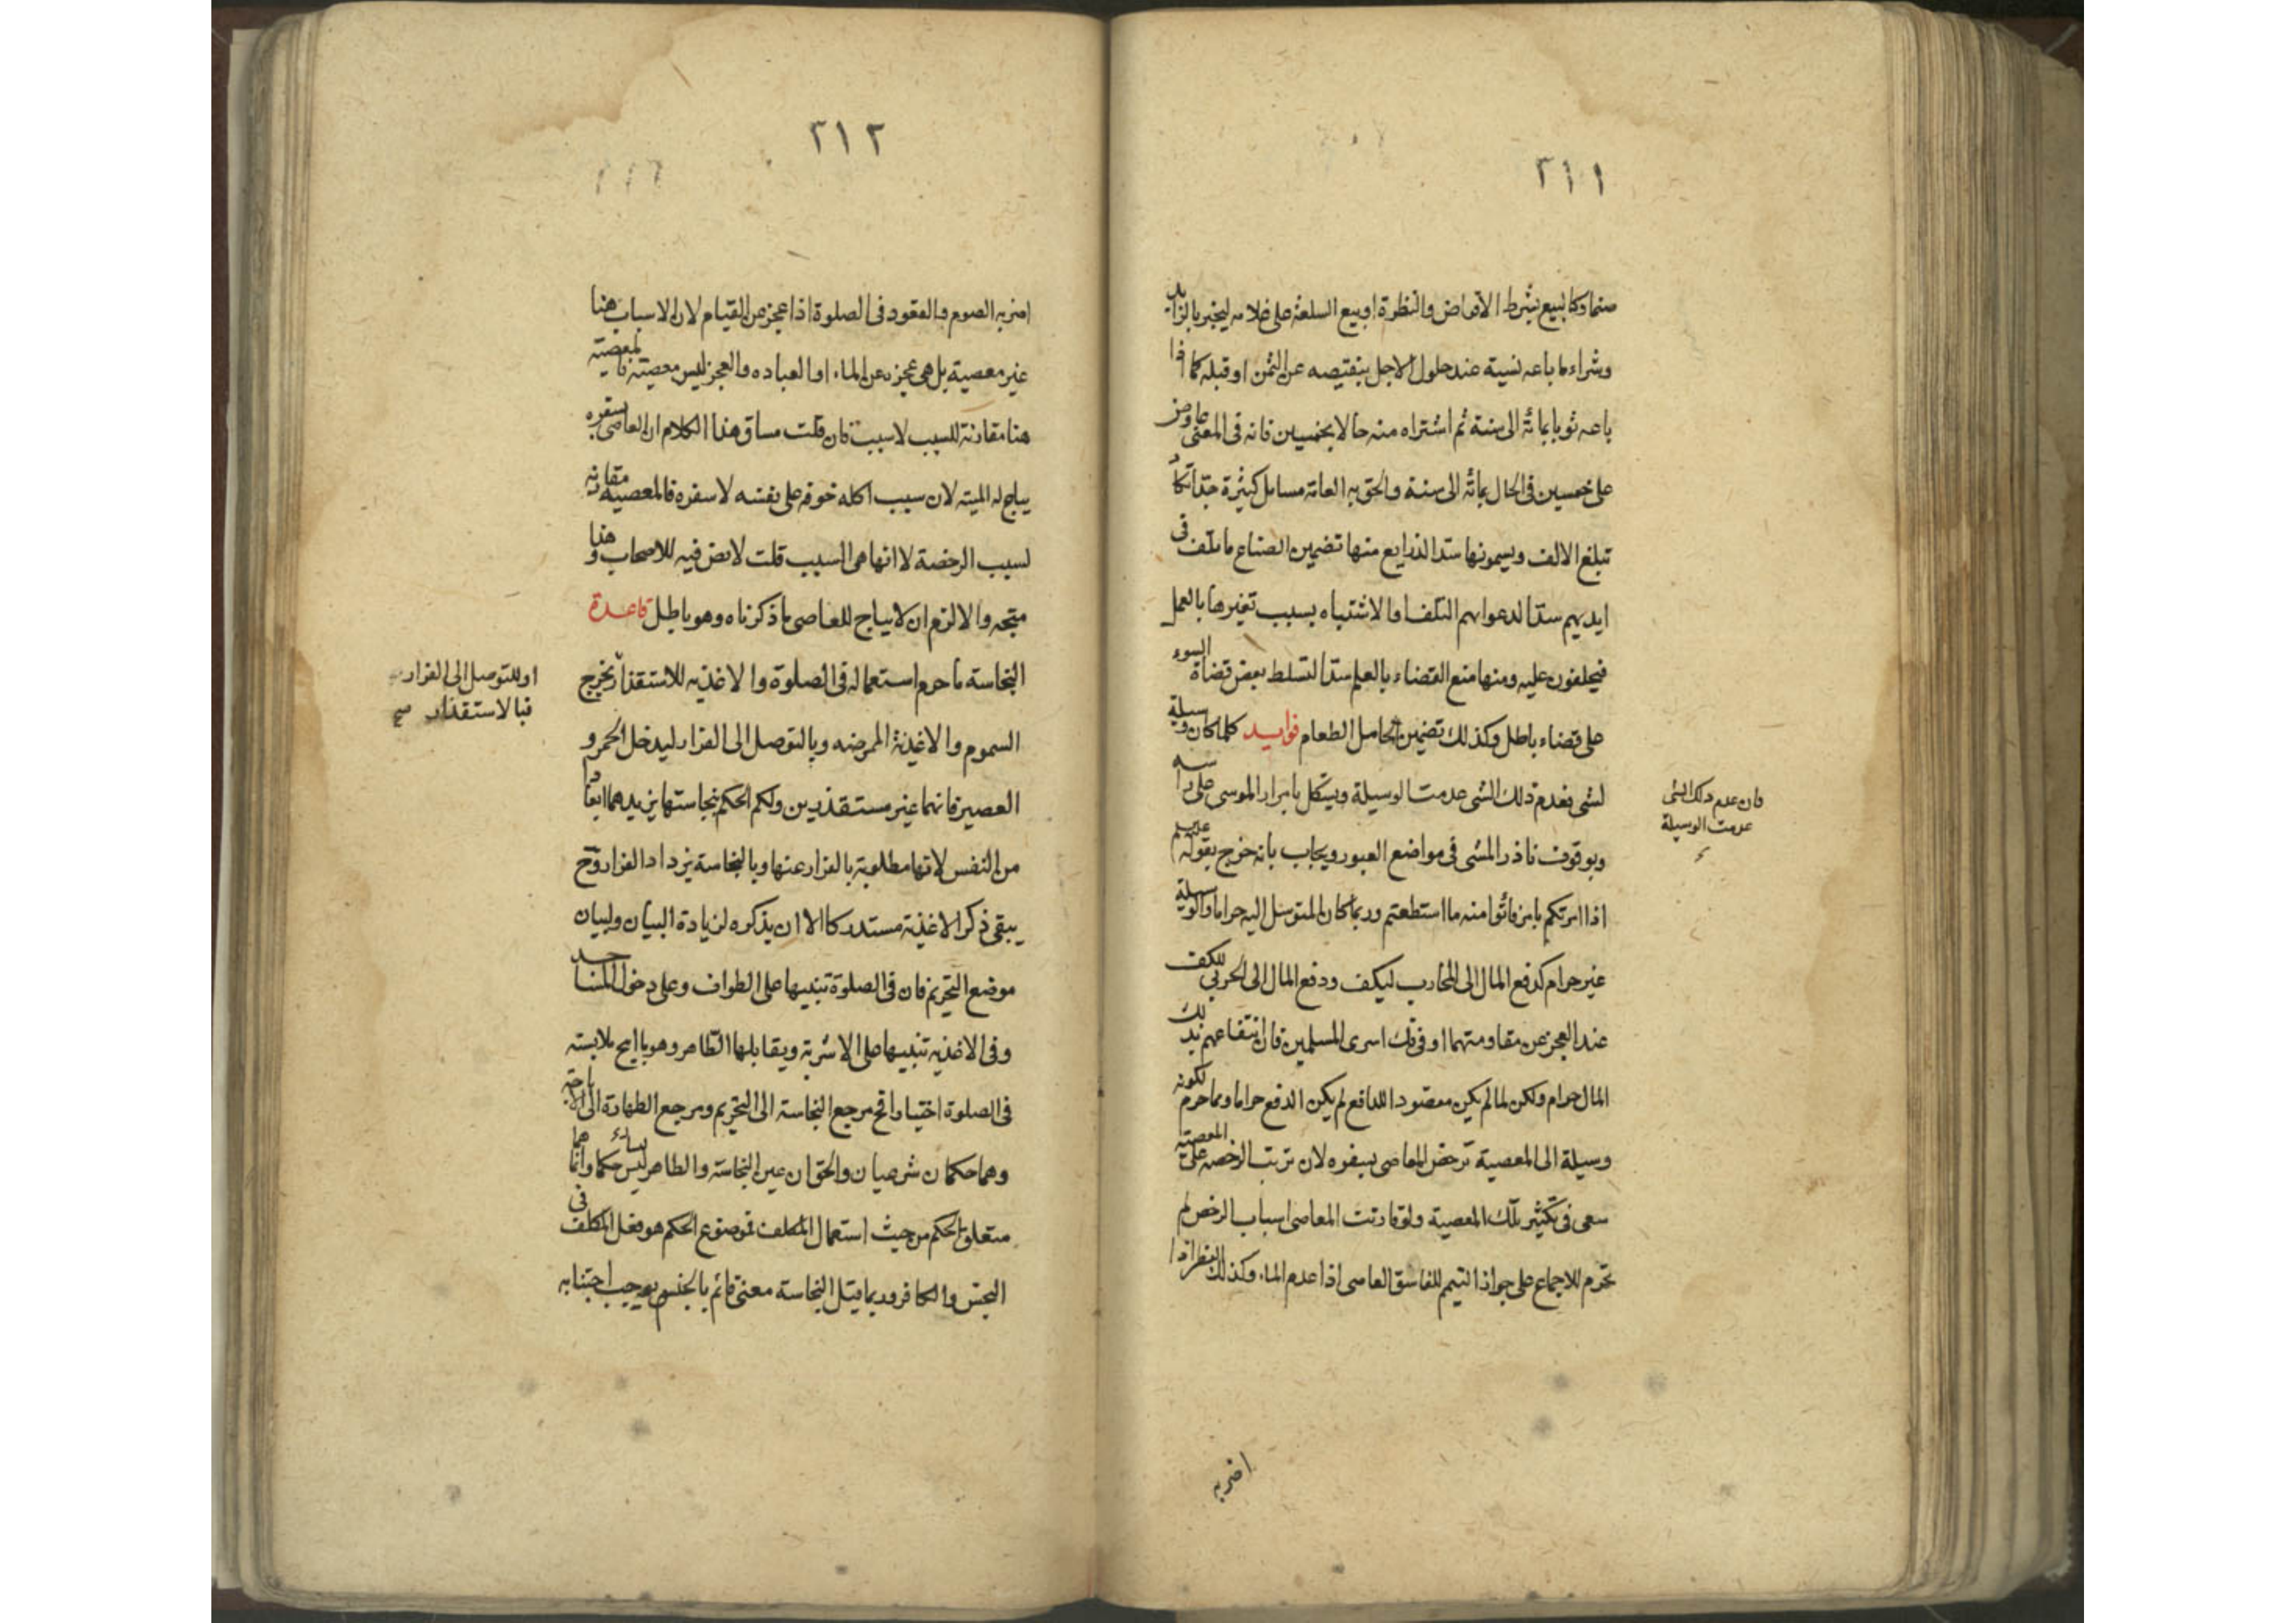 ٢١١
منها وكالبيع بشرط الاقراض والنظرة او بيع السلعة على غلامه ليخبر بالزايد
وشراء ما باعه نسية عند حلول الاجل بنقيصه عن الثمن او قبله كما اذا
باعه ثوبا بمائة الى سنة ثم اشتراه منه حالا بخمسين فانه فى المعنى عاوض
على خمسين فى الحال بمائة الى سنة والحق به العامة مسايل كثيرة جدا تكاد
تبلغ الالف ويسمونها سد الذرايع منها تضمين الصناع ما يتلف فى
ايديهم سدا لدعواهم التلف او الاشتباه بسبب تغيرها بالعمل
فيحلفون عليه ومنها منع القضاء بالعلم سدا لتسلط بعض قضاة السوء
على قضاء باطل وكذلك تضمين الحامل الطعام فوايد كلما كان وسيلة
لشى بعدم ذلك الشى عدمت الوسيلة ويشكل بامرار الموسى على راسه
فان عدم ذلك الشى
عدمت الوسيلة
وبوقوف ناذر المشى فى مواضع العبور ويجاب بانه خرج بقوله عليه
اذا امرتكم بامر فاتوا منه ما استطعتم وربما كان المتوسل اليه حراما والوسيلة
غير حرام كدفع المال الى المحارب ليكف ودفع المال الى الحربى للكف
عند العجز عن مقاومتهما او فى فك اسرى المسلمين فان انتفاعهم بذلك
المال حرام ولكن لما لم يكن مقصودا للدافع لم يكن الدفع حراما ومما حرم لكونه
وسيلة الى المعصية ترخص العاصى بسفره لان ترتب الرخصه على المعصية
سعى فى تكثير تلك المعصية ولو قارنت المعاصى اسباب الرخص لم
تحرم للاجماع على جواز التيمم للفاسق العاصى اذا عدم الماء وكذلك الفطر اذا
اضر به
٢١٢
اضر به الصوم والقعود فى الصلوة اذا عجز عن القيام لان الاسباب هنا
غير معصية بل هى عجزه عن الماء او العباده والعجز ليس معصية فالمعصية
هنا مقارنة للسبب لا سبب فان قلت مساق هذا الكلام ان العاصى بسفره
يباح له الميته لان سبب اكله خوفه على نفسه لا سفره فالمعصيه مقارنه
لسبب الرخصة لا انها هى السبب قلت لا نص فيه للاصحاب وهذا
متجه والا لزم ان لا يباح للعاصى ما ذكرناه وهو باطل قاعدة
النجاسة ما حرم استعماله فى الصلوة والاغذيه للاستقذار يخرج
او للتوصل الى الفرار
فبالاستقذار صح
السموم والاغذية الممرضه وبالتوصل الى الفرار ليدخل الخمر و
العصير فانهما غير مستقذرين ولكم الحكم بنجاستها يزيدهما ابعادا
من النفس لانها مطلوبة بالفرار عنها وبالنجاسة يزداد الفرار وح
يبقى ذكر الاغذية مستدركا الا ان يذكره لزيادة البيان ولبيان
موضع التحريم فان فى الصلوة تنبيها على الطواف وعلى دخول المساجد
وفى الاغذيه تنبيها على الاشربة ويقابلها الطاهر وهو ما ابيح ملابسته
فى الصلوة اختيارا فح مرجع النجاسة الى التحريم ومرجع الطهارة الى الاباحة
وهما حكمان شرعيان والحق ان عين النجاسة والطاهر ليس حكما وانما هما
متعلق الحكم من حيث استعمال المكلف فموضوع الحكم هو فعل المكلف فى
النجس والكافر وربما قيل النجاسة معنى قائم بالجنس يوجب اجتنابه